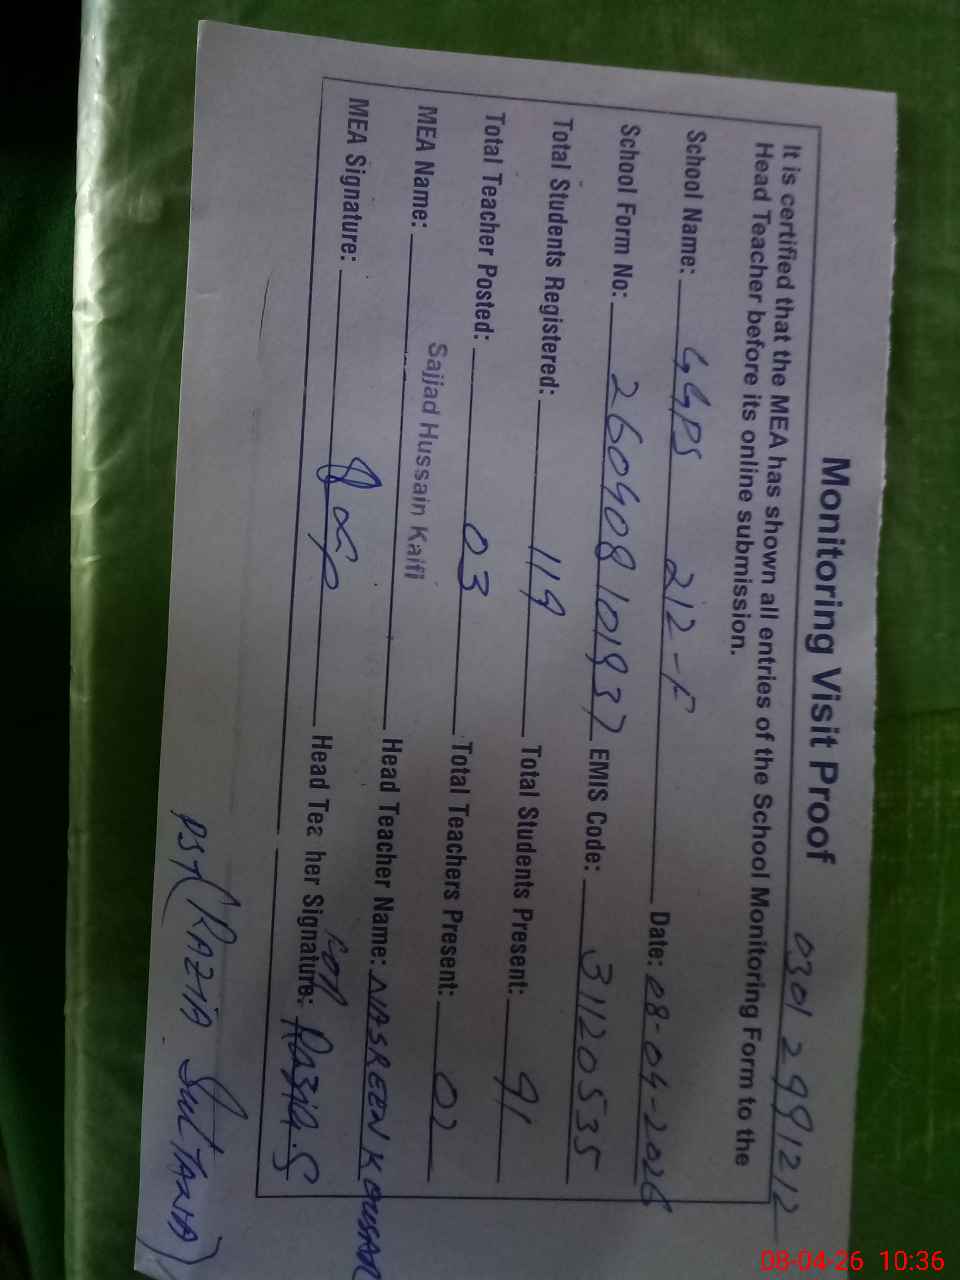 Monitoring Visit Proof 0301 2991212
It is certified that the MEA has shown all entries of the School Monitoring Form to the
Head Teacher before its online submission.
School Name: GGPS 212-F Date: 08-04-2026
School Form No: 260408101937 EMIS Code: 31120535
Total Students Registered: 119 Total Students Present: 91
Total Teacher Posted: 03 Total Teachers Present: 02
MEA Name: Sajjad Hussain Kaifi Head Teacher Name: NASREEN KOUSAR
MEA Signature: Head Teacher Signature: Razia.S
PST (RAZIA SULTANA)
08-04-26 10:36